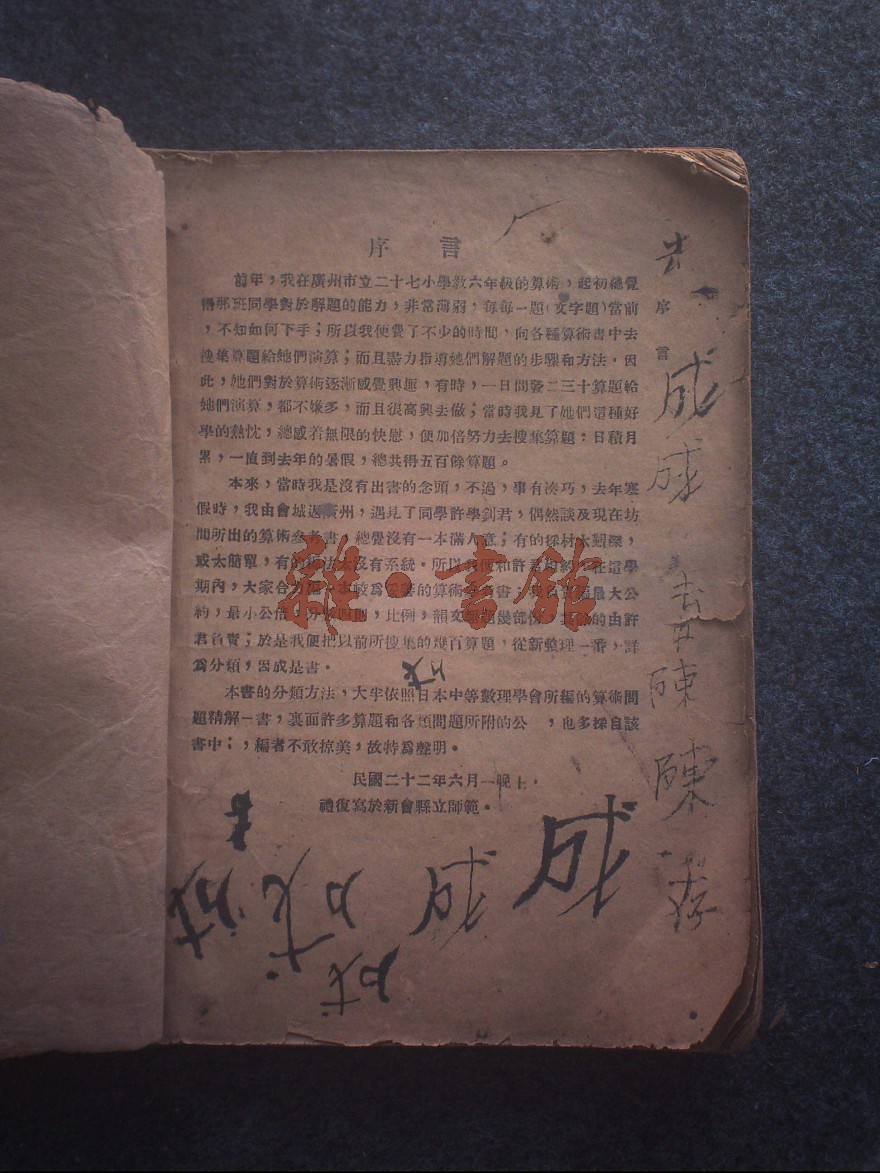 序言
前年，我在廣州市立二十七小學教六年級的算術，起初總覺
得那班同學對於解題的能力，非常薄弱，每每一題（文字題）當前
，不知如何下手；所以我便費了不少的時間，向各種算術書中去
搜集算題給她們演算；而且盡力指導她們解題的步驟和方法。因
此，她們對於算術逐漸感覺興趣，有時，一日間發二三十算題給
她們演算，都不嫌多，而且很高興去做；當時我見了她們這種好
學的熱忱，總感着無限的快慰，便加倍努力去搜集算題。日積月
累，一直到去年的暑假，總共得五百餘算題。
本來，當時我是沒有出書的念頭，不過，事有湊巧，去年寒
假時，我由會城返廣州，遇見了同學許學釗君，偶然談及現在坊
間所出的算術參考書，總覺沒有一本滿人意；有的採材太艱深，
或太簡單，有的 沒有系統。所以我便和許君相約，在這學
期內，大家合 算術 書；我負責編最大公
約，最小公倍， 比例， 幾部份，其餘的由許
君負責；於是我便把以前所搜集的幾百算題，從新整理一番，詳
爲分類，因成是書。
本書的分類方法，大半依照日本中等數理學會所編的算術問
題精解一書，裏面許多算題和各類問題所附的公 ，也多採自該
書中；，編者不敢掠美，故特爲聲明。
民國二十二年六月一晚上，
禮復寫於新會縣立師範。
序言
去
成
成
陳
陳
存
雜·書館